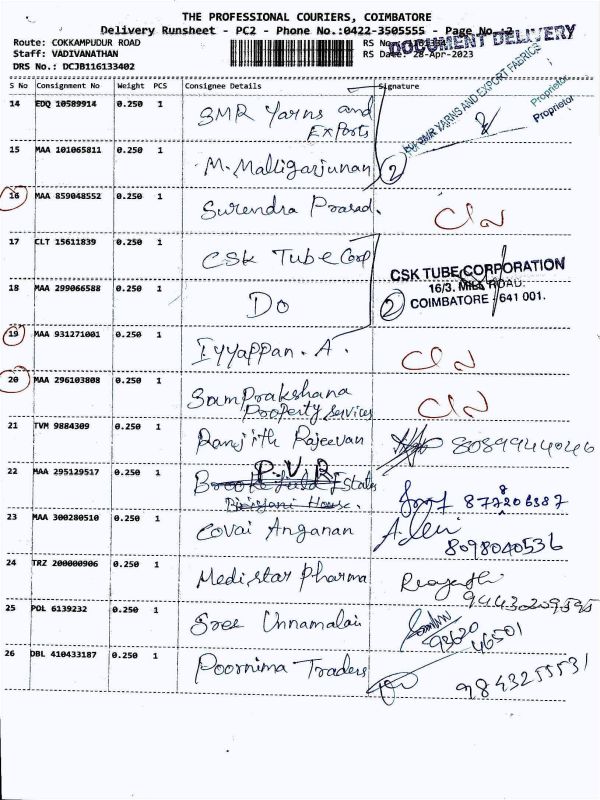 THE PROFESSIONAL COURIERS, COIMBATORE
Delivery Runsheet - PC2 - Phone No.:0422-3505555 - Page No.:2
Route: COKKAMPUDUR ROAD RS No
DOCUMENT DELIVERY
Staff: VADIVANATHAN RS Date: 28-Apr-2023
DRS No.: DCJB116133402
S No Consignment No Weight PCS Consignee Details Signature
14 EDQ 10589914 0.250 1 SMR Yarns and
Exports
For SMR YARNS AND EXPORT FABRICS
Proprietor
Proprietor
15 MAA 101065811 0.250 1 M. Malligarjunan 2
16 MAA 859048552 0.250 1 Surendra Prasad.
17 CLT 15611839 0.250 1 CSK Tube Corp
CSK TUBE CORPORATION
16/3, MILL ROAD.
COIMBATORE - 641 001.
18 MAA 299066588 0.250 1 Do 2
19 MAA 931271001 0.250 1 Iyyappan. A.
20 MAA 296103808 0.250 1 Samprakshana
Property Services
21 TVM 9884309 0.250 1 Ranjith Rajeevan 8089944046
22 MAA 295129517 0.250 1 P.V.R
Brookefield Estates
Biriyani House.
23 MAA 300280510 0.250 1 Covai Anganan
8098040536
24 TRZ 200000906 0.250 1 Medistar Pharma
9443209595
25 POL 6139232 0.250 1 Sree Unnamalai 93620
46501
26 DBL 410433187 0.250 1 Poornima Traders 9843255531